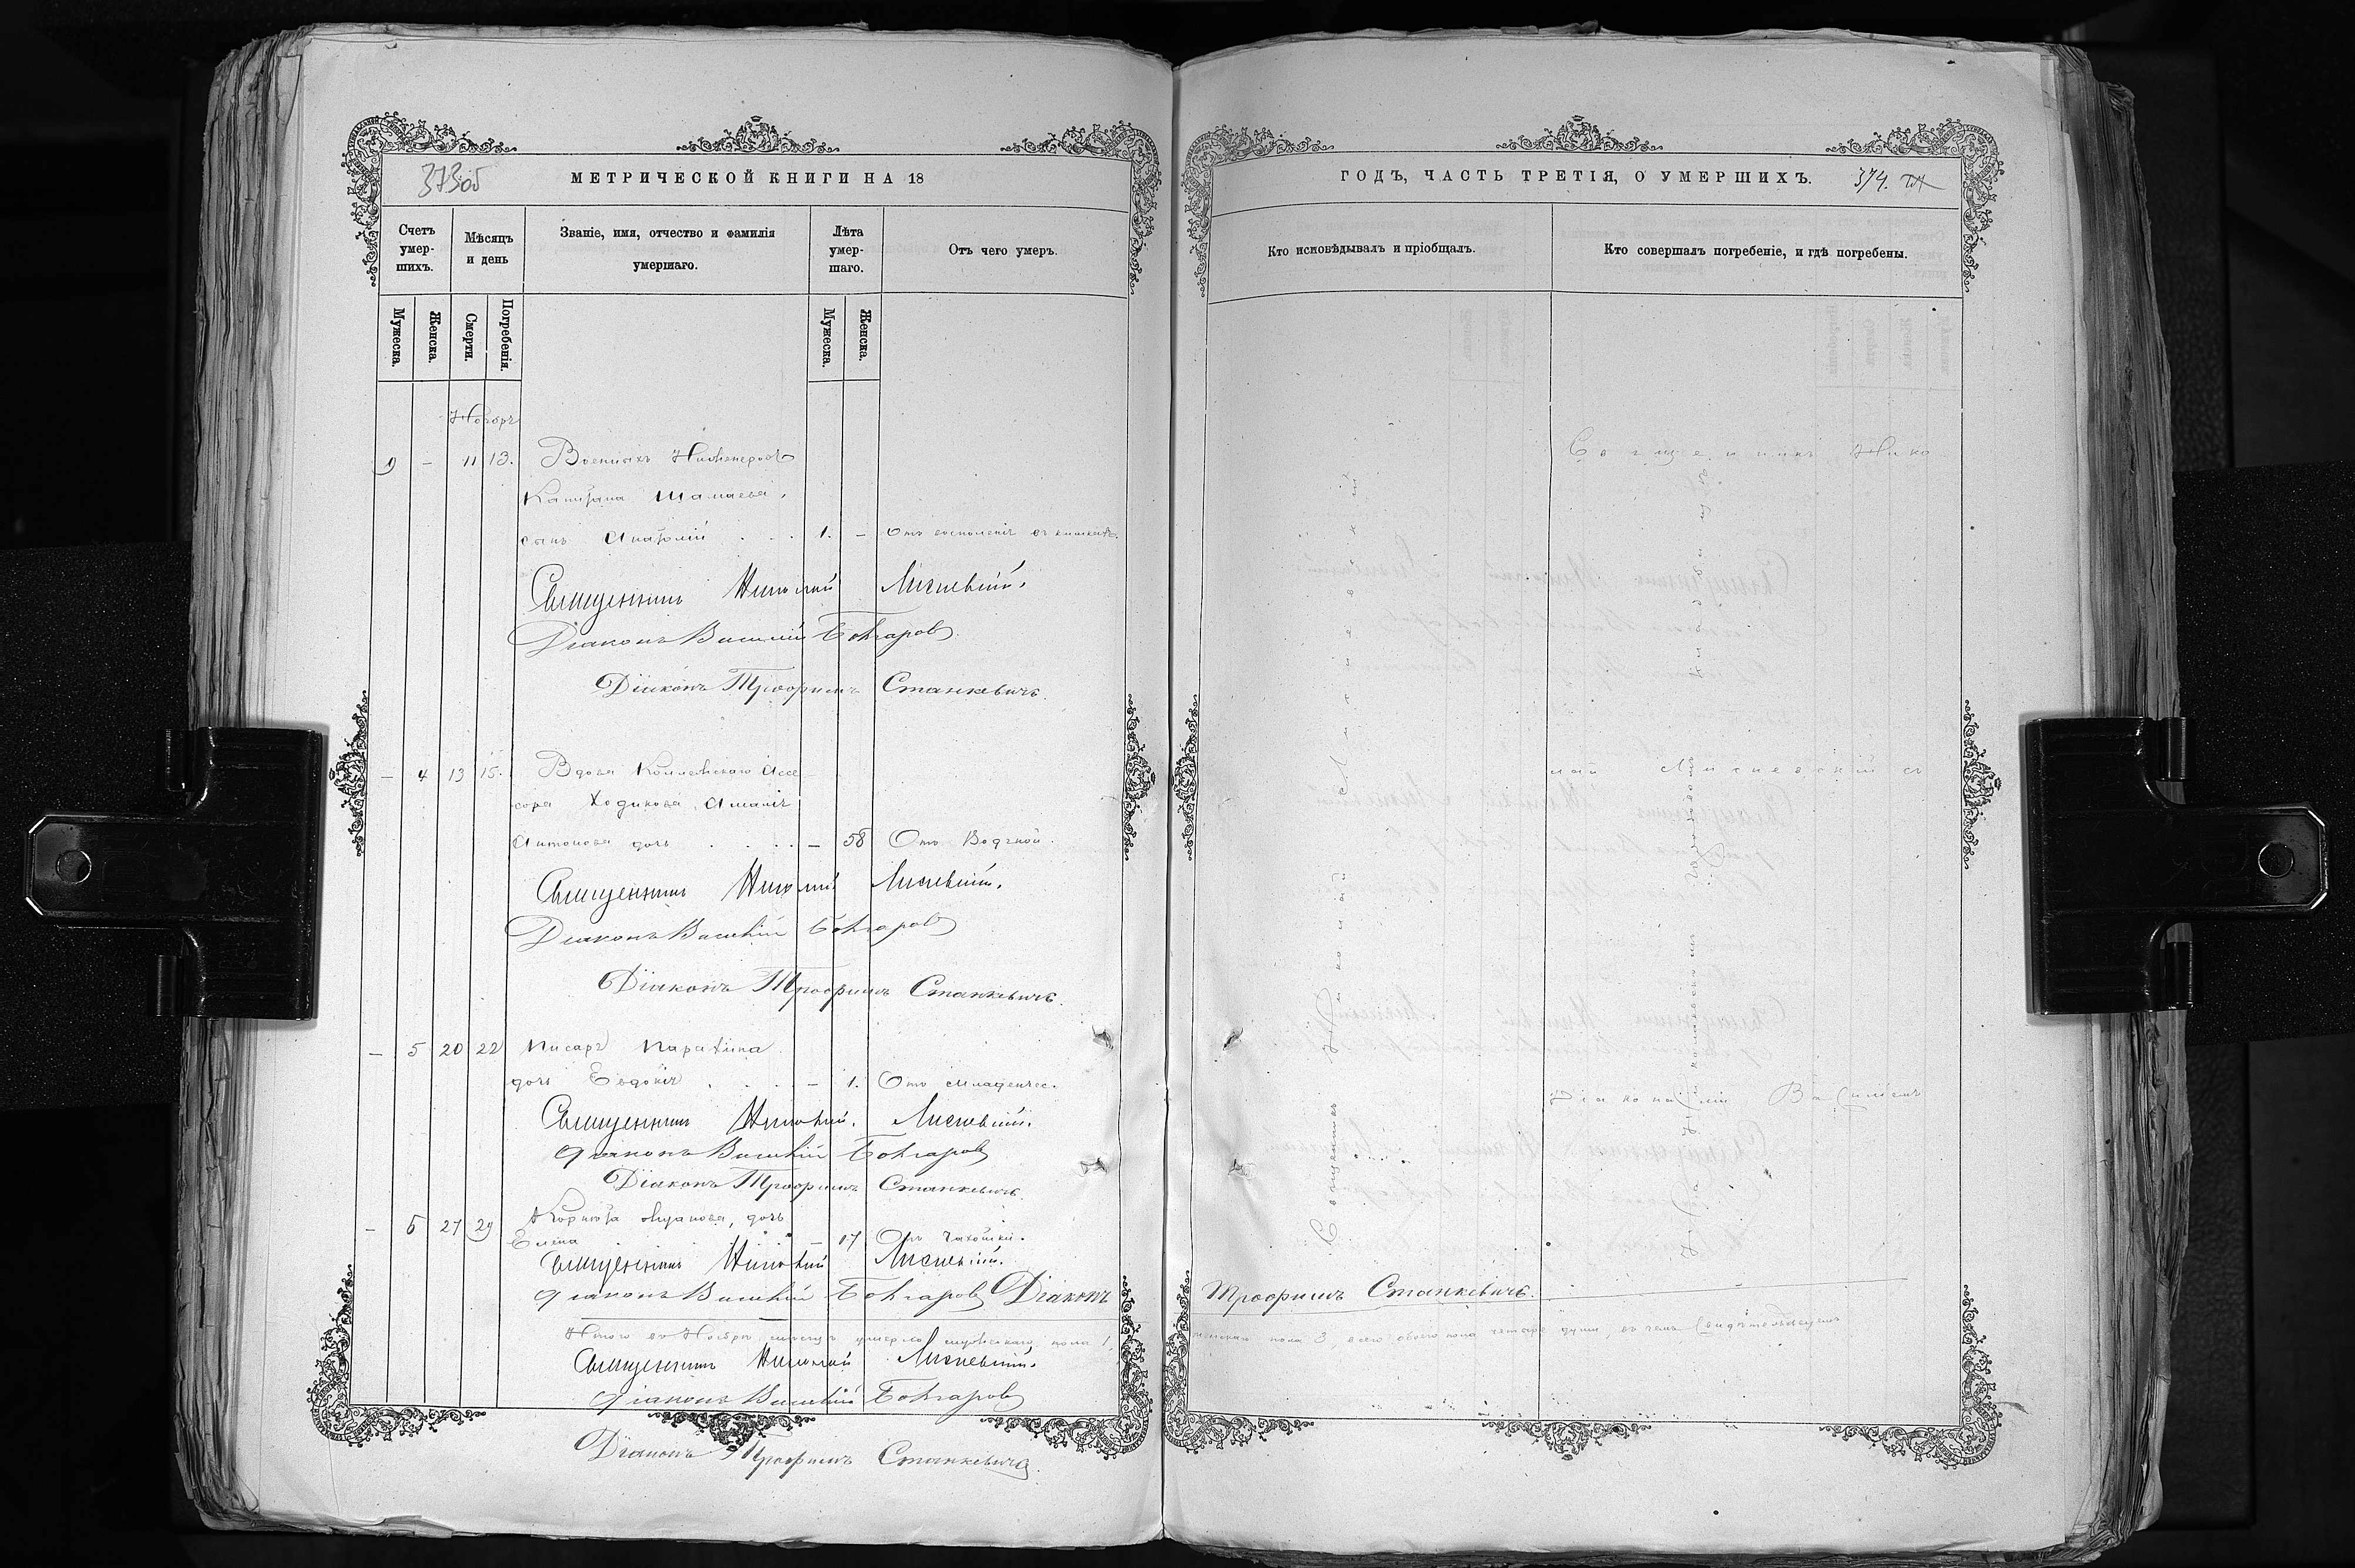 373об
МЕТРИЧЕСКОЙ КНИГИ НА 18
Счетъ умер-шихъ.
Мѣсяцъ и день
Званіе, имя, отчество и фамилія умершаго.
Лѣта умер-шаго.
Отъ чего умеръ.
Мужеска.
Женска.
Смерти.
Погребенія.
Мужеска.
Женска.
Ноябрь
9 – 11 13. Военныхъ Инженеровъ
Капитана Шамаева,
сынъ Анатолій . . . 1. – Отъ воспаленія въ кишкахъ.
Священникъ Николай Лисневскій.
Діаконъ Василій Бонгаровъ
Діаконъ Трофимъ Станкевичъ.
– 4 13 15. Вдова Коллежскаго Ассе-
сора Ходикова,
Антонова дочь . . . . – 58 Отъ Водяной.
Священникъ Николай Лисневскій.
Діаконъ Василій Бонгаровъ
Діаконъ Трофимъ Станкевичъ.
– 5 20 22 Писаря
дочь Евдокія . . . – 1. Отъ младенчес.
Священникъ Николай. Лисневскій.
Діаконъ Василій Бонгаровъ
Діаконъ Трофимъ Станкевичъ.
– 6 27 29 дочь
Елена – 17 Отъ чахотки.
Священникъ Николай Лисневскій.
Діаконъ Василій Бонгаровъ Діаконъ
Итого въ Ноябрѣ мѣсяцѣ умерло мужескаго пола 1,
Священникъ Николай Лисневскій.
Діаконъ Василій Бонгаровъ
Діаконъ Трофимъ Станкевичъ.
ГОДЪ, ЧАСТЬ ТРЕТІЯ, О УМЕРШИХЪ. 374.
Кто исповѣдывалъ и пріобщалъ.
Кто совершалъ погребеніе, и гдѣ погребены.
Священникъ Николай Лисневскій
Священникъ Нико
лай Лисневскій съ
Діаконами Василіемъ
Трофимъ Станкевичъ.
женскаго пола 3, всего обоего пола четыре души, въ чемъ свидѣтельствуемъ